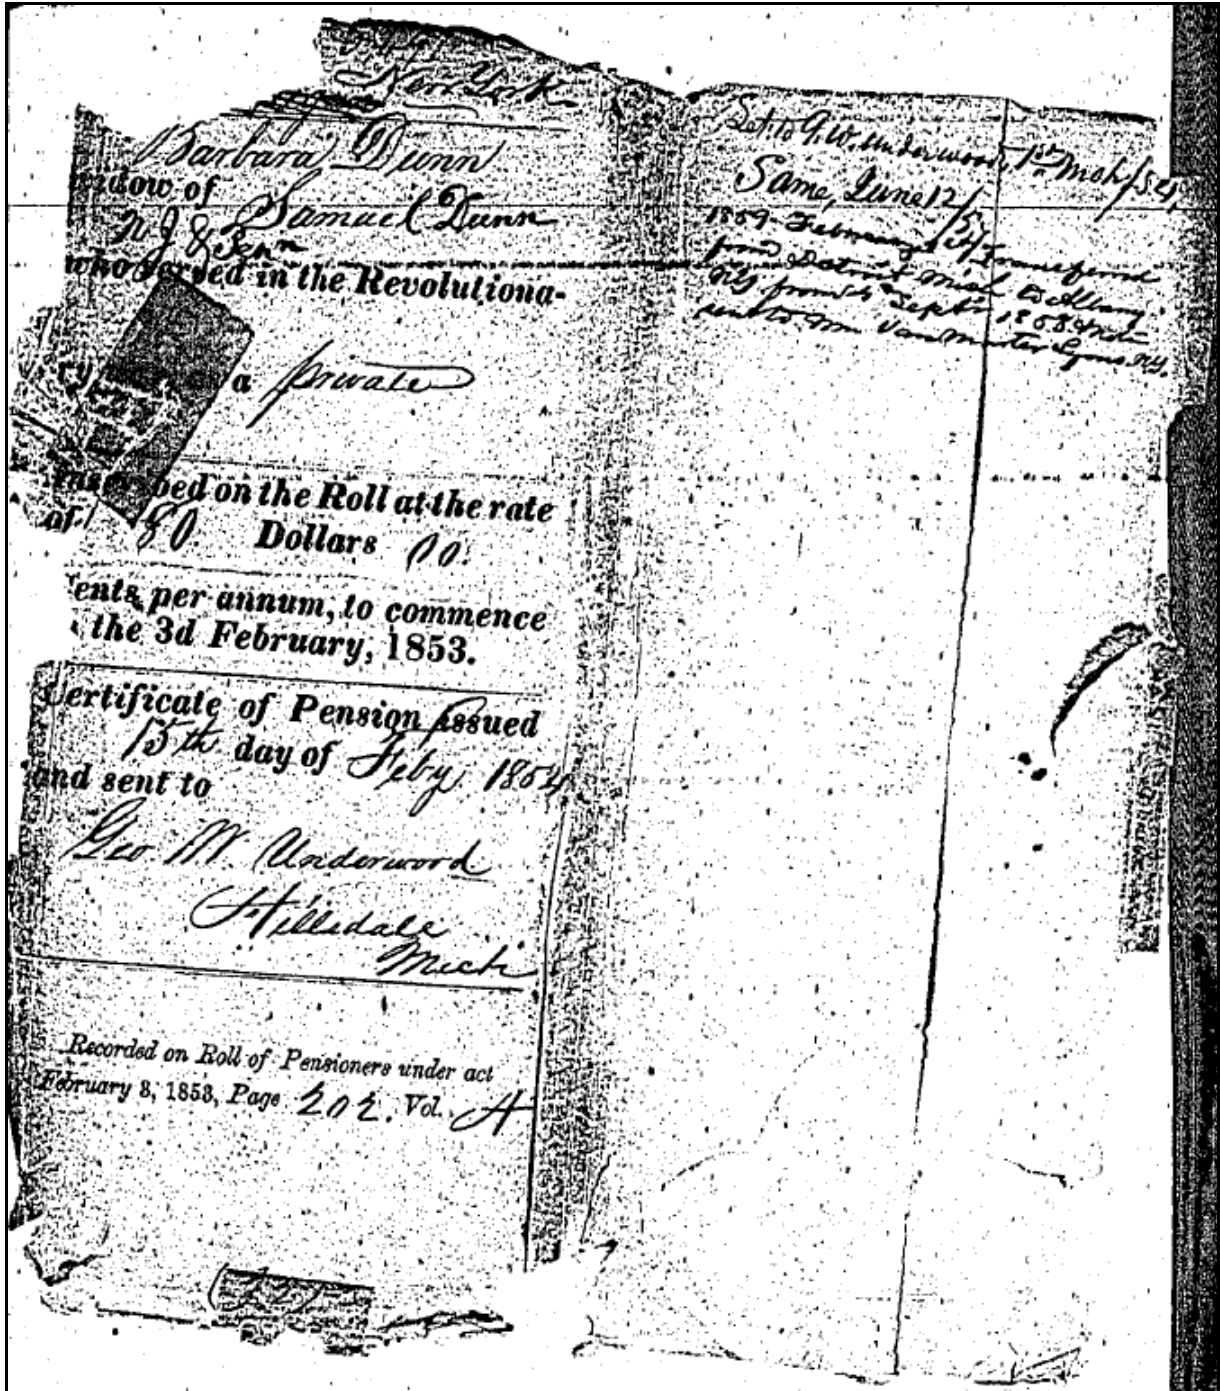 New York
Barbara Dunn
widow of
Samuel Dunn
N J & Penn
who served in the Revolutiona-
ry a private
Inscribed on the Roll at the rate
of 80 Dollars 00
ents per annum, to commence
the 3d February, 1853.
Certificate of Pension issued
15th day of Feby 1854
and sent to
Geo W. Underwood
Hillsdale
Mich
Recorded on Roll of Pensioners under act
February 3, 1853, Page 202. Vol. A
Let. to G. W. Underwood, Mch /54,
Same, June 12/57
1859 - February Transferred
from Detroit Mich to Albany
NY from 4 Septr 1858 & not-
sent to Wm Van Marter Lyons NY.